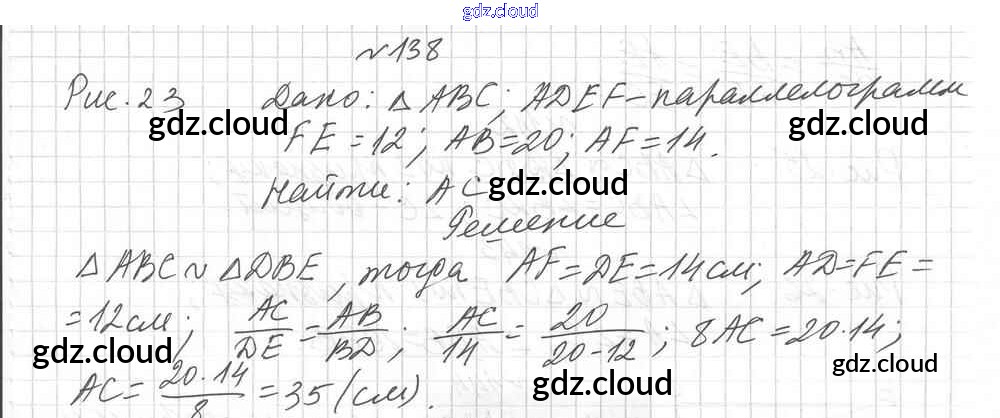 gdz.cloud
№138
Рис. 23 Дано: △ABC; ADEF-параллелограмм
gdz.cloud gdz.cloud
FE=12; AB=20; AF=14.
Найти: AC gdz.cloud
Решение
△ABC ∾ △DBE, тогда AF=DE=14см; AD=FE=
=12см; AC/DE=AB/BD; AC/14=20/20-12; 8AC=20·14;
gdz.cloud gdz.cloud gdz.cloud
AC=20·14/8=35(см).
gdz.cloud